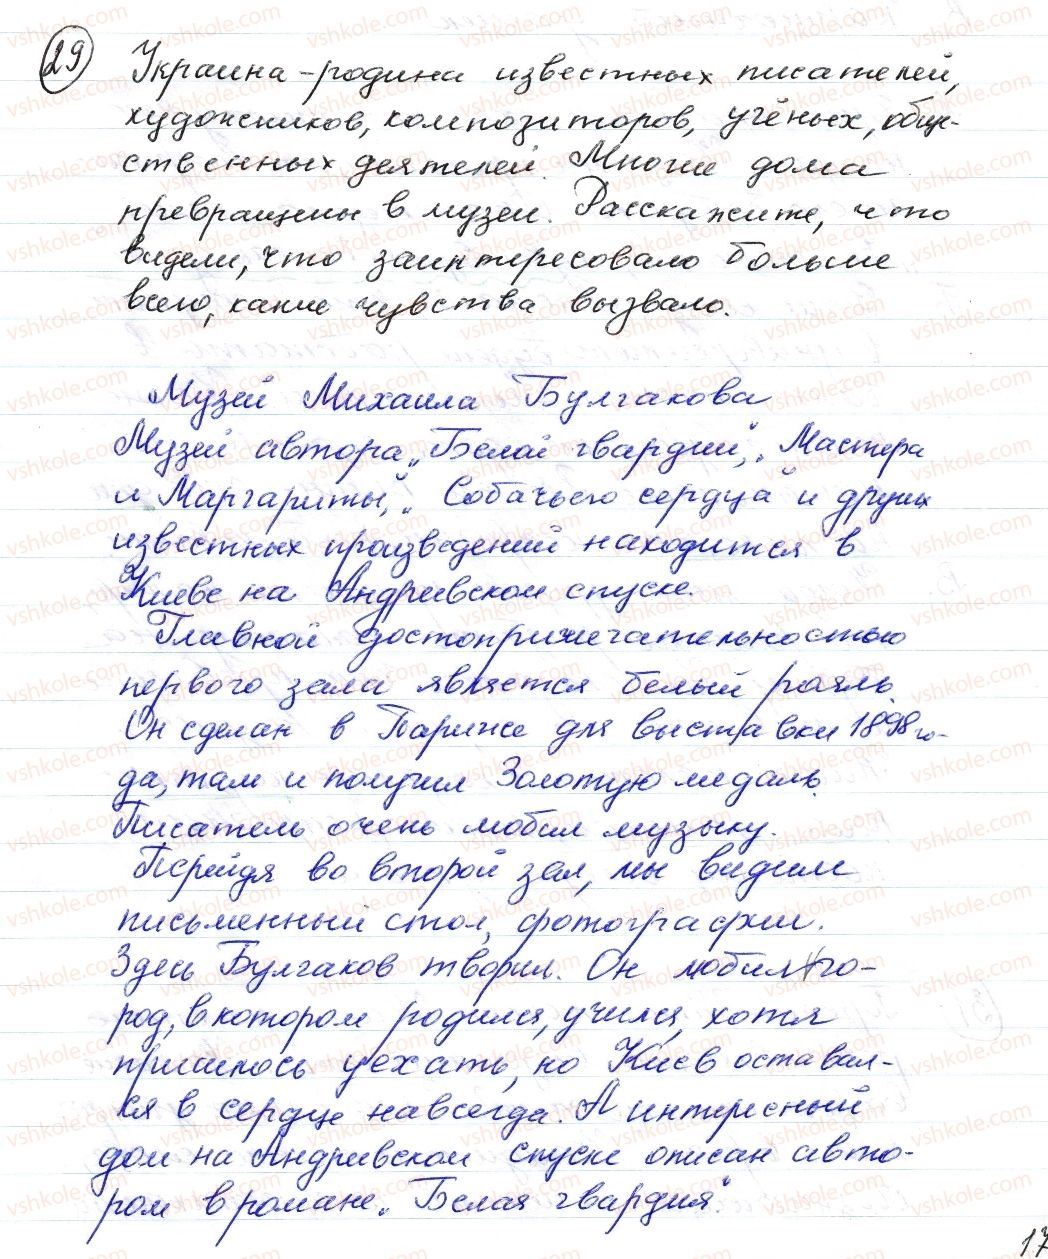 29 Украина – родина известных писателей,
художников, композиторов, учёных, обще-
ственных деятелей. Многие дома
превращены в музеи. Расскажите, что
видели, что заинтересовало больше
всего, какие чувства вызвало.
Музей Михаила Булгакова
Музей автора „Белой гвардии", „Мастера
и Маргариты", „Собачьего сердца" и других
известных произведений находится в
Киеве на Андриевском спуске.
Главной достопримечательностью
первого зала является белый рояль.
Он сделан в Париже для выставки 1898 го-
да, там и получил Золотую медаль.
Писатель очень любил музыку.
Перейдя во второй зал, мы видим
письменный стол, фотографии.
Здесь Булгаков творил. Он любил го-
род, в котором родился, учился, хотя
пришлось уехать, но Киев оставал-
ся в сердце навсегда. А интересный
дом на Андриевском спуске описан авто-
ром в романе „Белая гвардия".
17